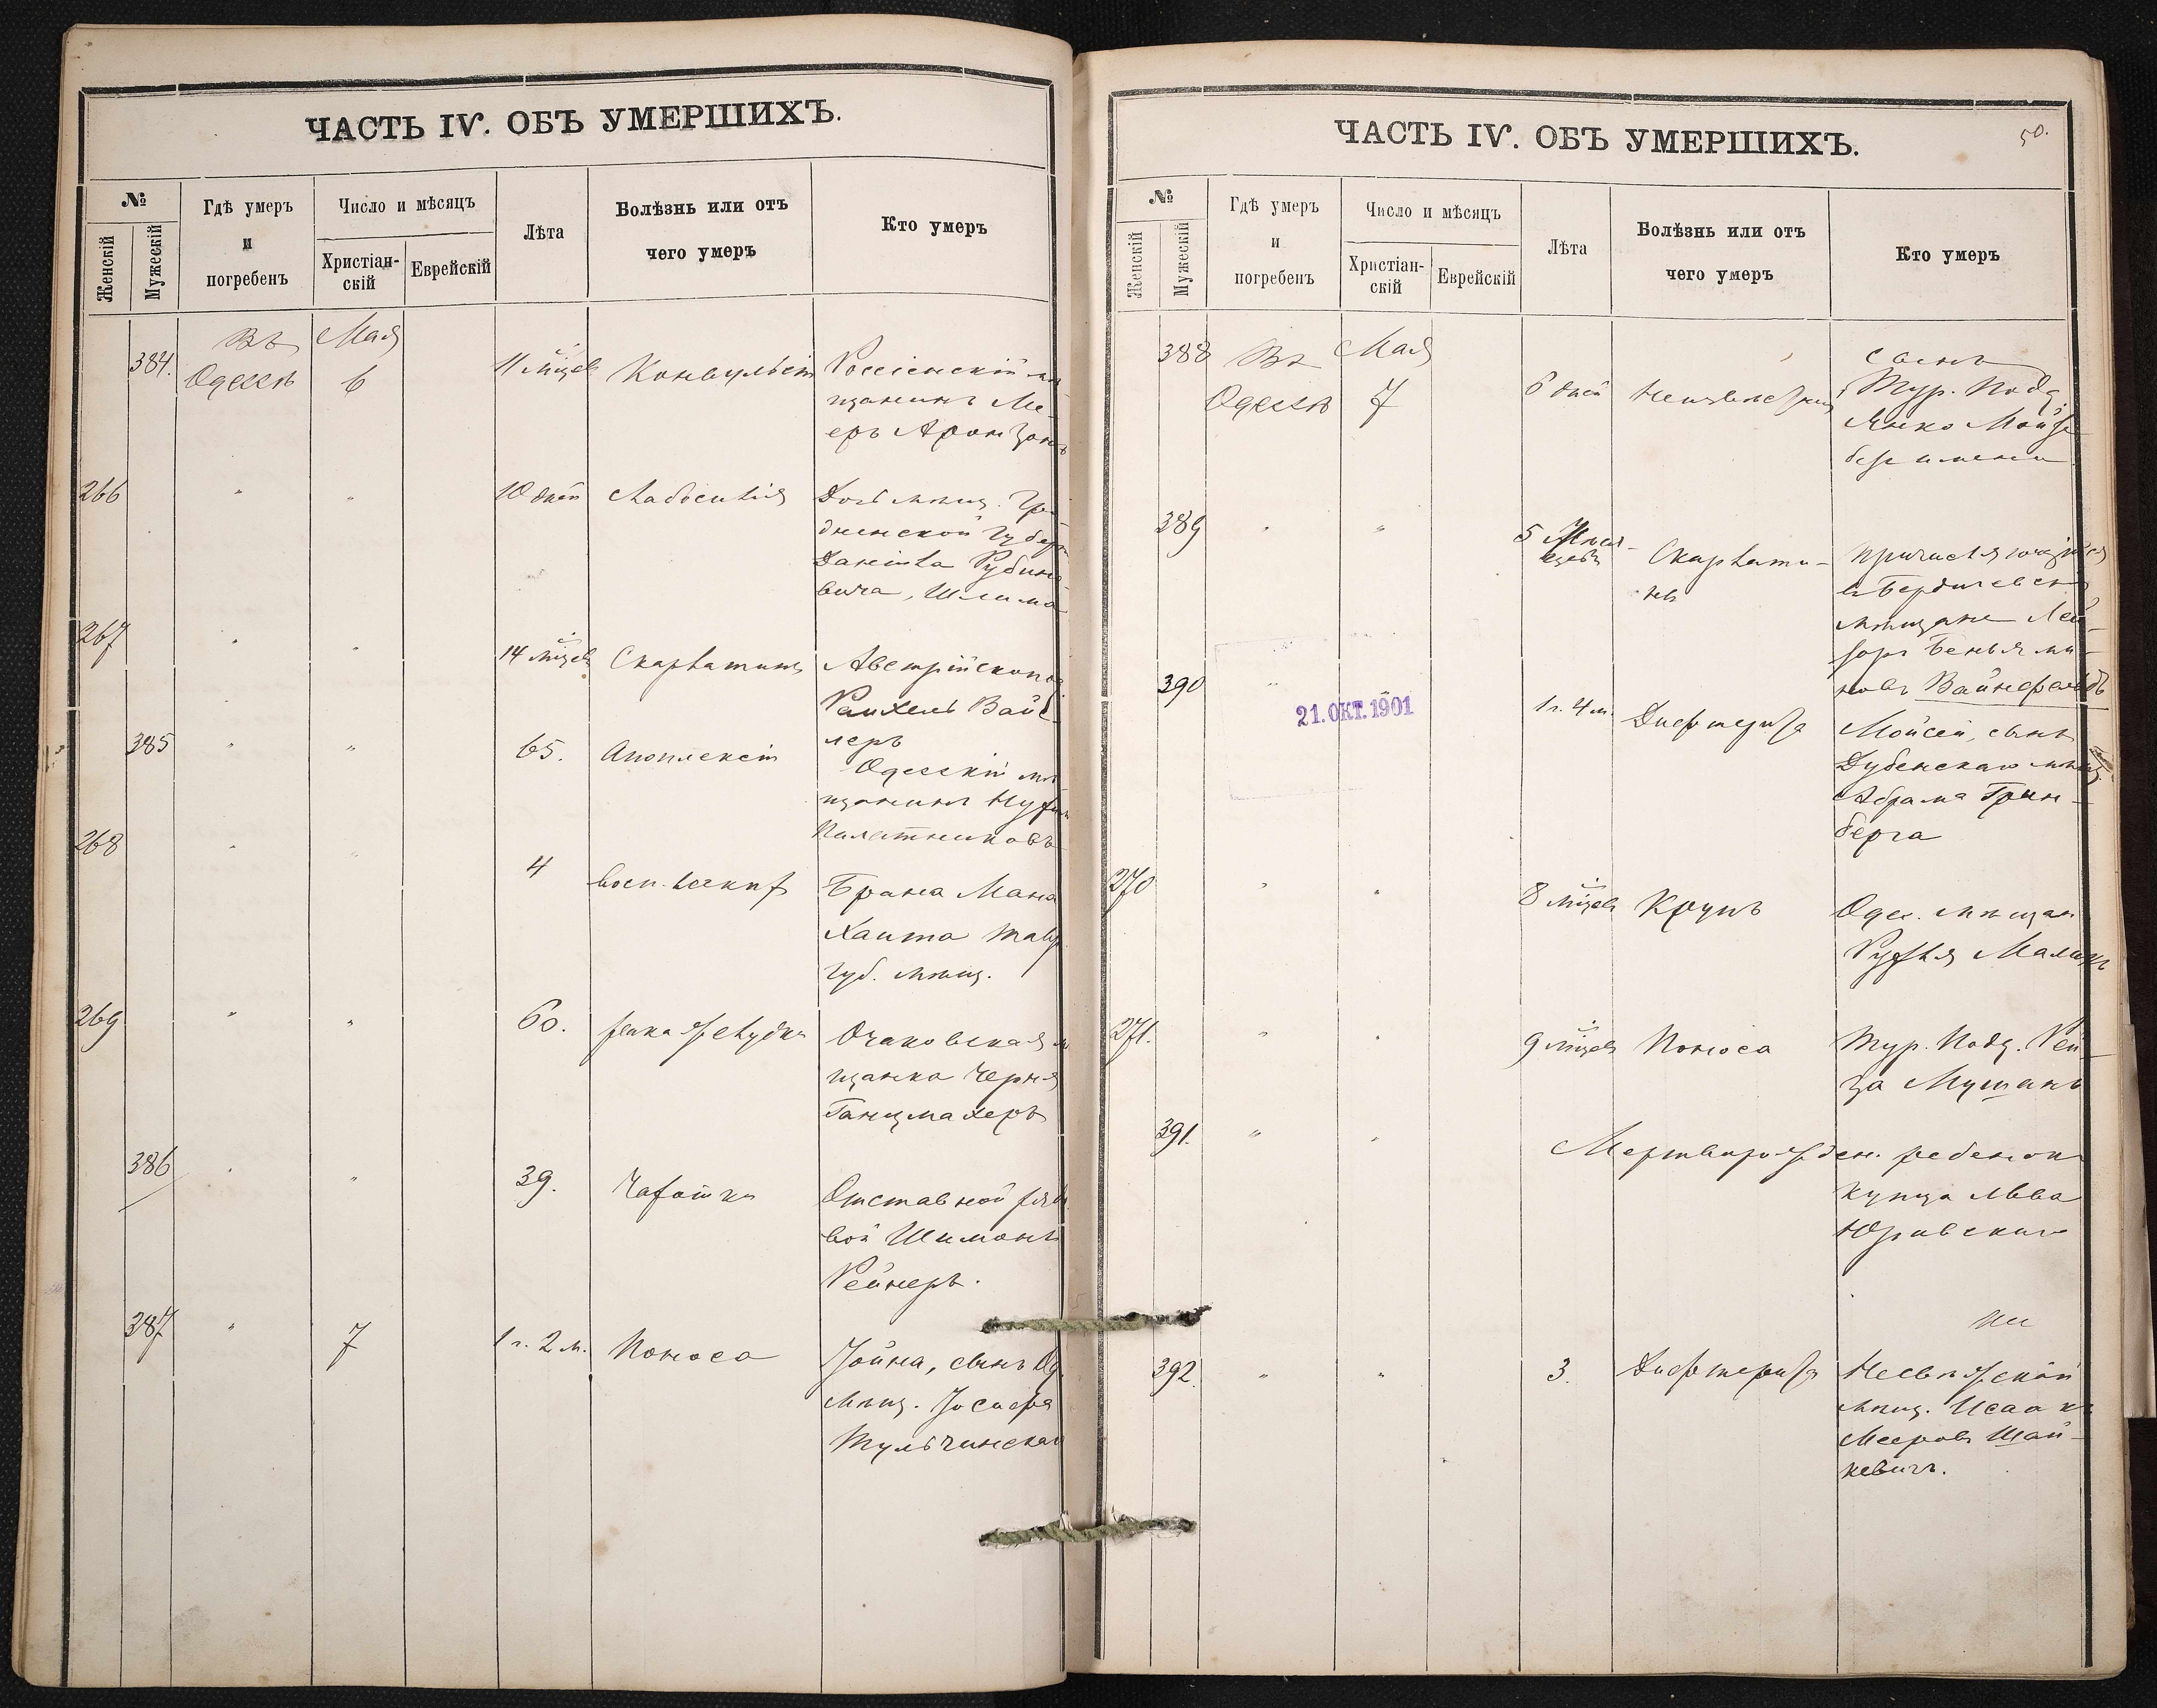 ЧАСТЬ IV. ОБЪ УМЕРШИХЪ.
№
Женскій
Мужескій
Гдѣ умеръ
и
погребенъ
Число и мѣсяцъ
Христіан-
скій
Еврейскій
Лѣта
Болѣзнь или отъ
чего умеръ
Кто умеръ
384. Въ Одессѣ Мая 6 11 мѣсяц. Конвульсіи Россіенскій мѣ-
щанинъ Ме-
еръ Аронзонъ
266 " " 10 дней Слабосилія Дочь мѣщ. Гро-
дненской Губер
Даніила Рубино-
вича, Шлима
267 " " 14 мѣсяц. Скарлатины Австрійскопод
Рейхель Вай-
леръ
385 " " 65. Апоплексіи Одесскій мѣ
щанинъ Нухимъ
Палатниковъ
268 " " 4 восп. легкихъ Брана Мана
Хаита Тавр.
губ. мѣщ.
269 " " 60. рака желудка Очаковская м
щанка Черня
Ганцмахеръ
386 " " 39. Чахотки Отставной рядо
вой Шимонъ
Рейнеръ.
387 " 7 1 г. 2 м. Поноса Іойна, сынъ Од.
мѣщ. Іосифа
Тульчинскаго
ЧАСТЬ IV. ОБЪ УМЕРШИХЪ.
50.
№
Женскій
Мужескій
Гдѣ умеръ
и
погребенъ
Число и мѣсяцъ
Христіан-
скій
Еврейскій
Лѣта
Болѣзнь или отъ
чего умеръ
Кто умеръ
388 Въ Одессѣ Мая 7 6 дней неизвѣстной сынъ
Тур. Подд.
Янко Мойзе
безъ имени
389 " " 5 Мѣся-
цевъ Скарлати-
ны причисляющійся
къ Бердичевск
мѣщане Лей-
зоръ Беньями-
новъ Вайнфельдъ
390 " 21. ОКТ. 1901 1 г. 4 м. Дифтерита Мойсей, сынъ
Дубенскаго мѣщ.
Абрама Грин-
берга
270 " " 8 мѣсяц. Крупъ Одес. мѣщан
Рухля Маликъ
271. " " 9 мѣсяц. Поноса Тур. Подд. Рей-
за Мушанъ
391. " " Мертворожден. ребенок
купца Льва
Юровскаго
392. " " 3. Дифтерита Несвѣжскій
мѣщ. Исаакъ
Мееровъ Шай-
кевичъ.